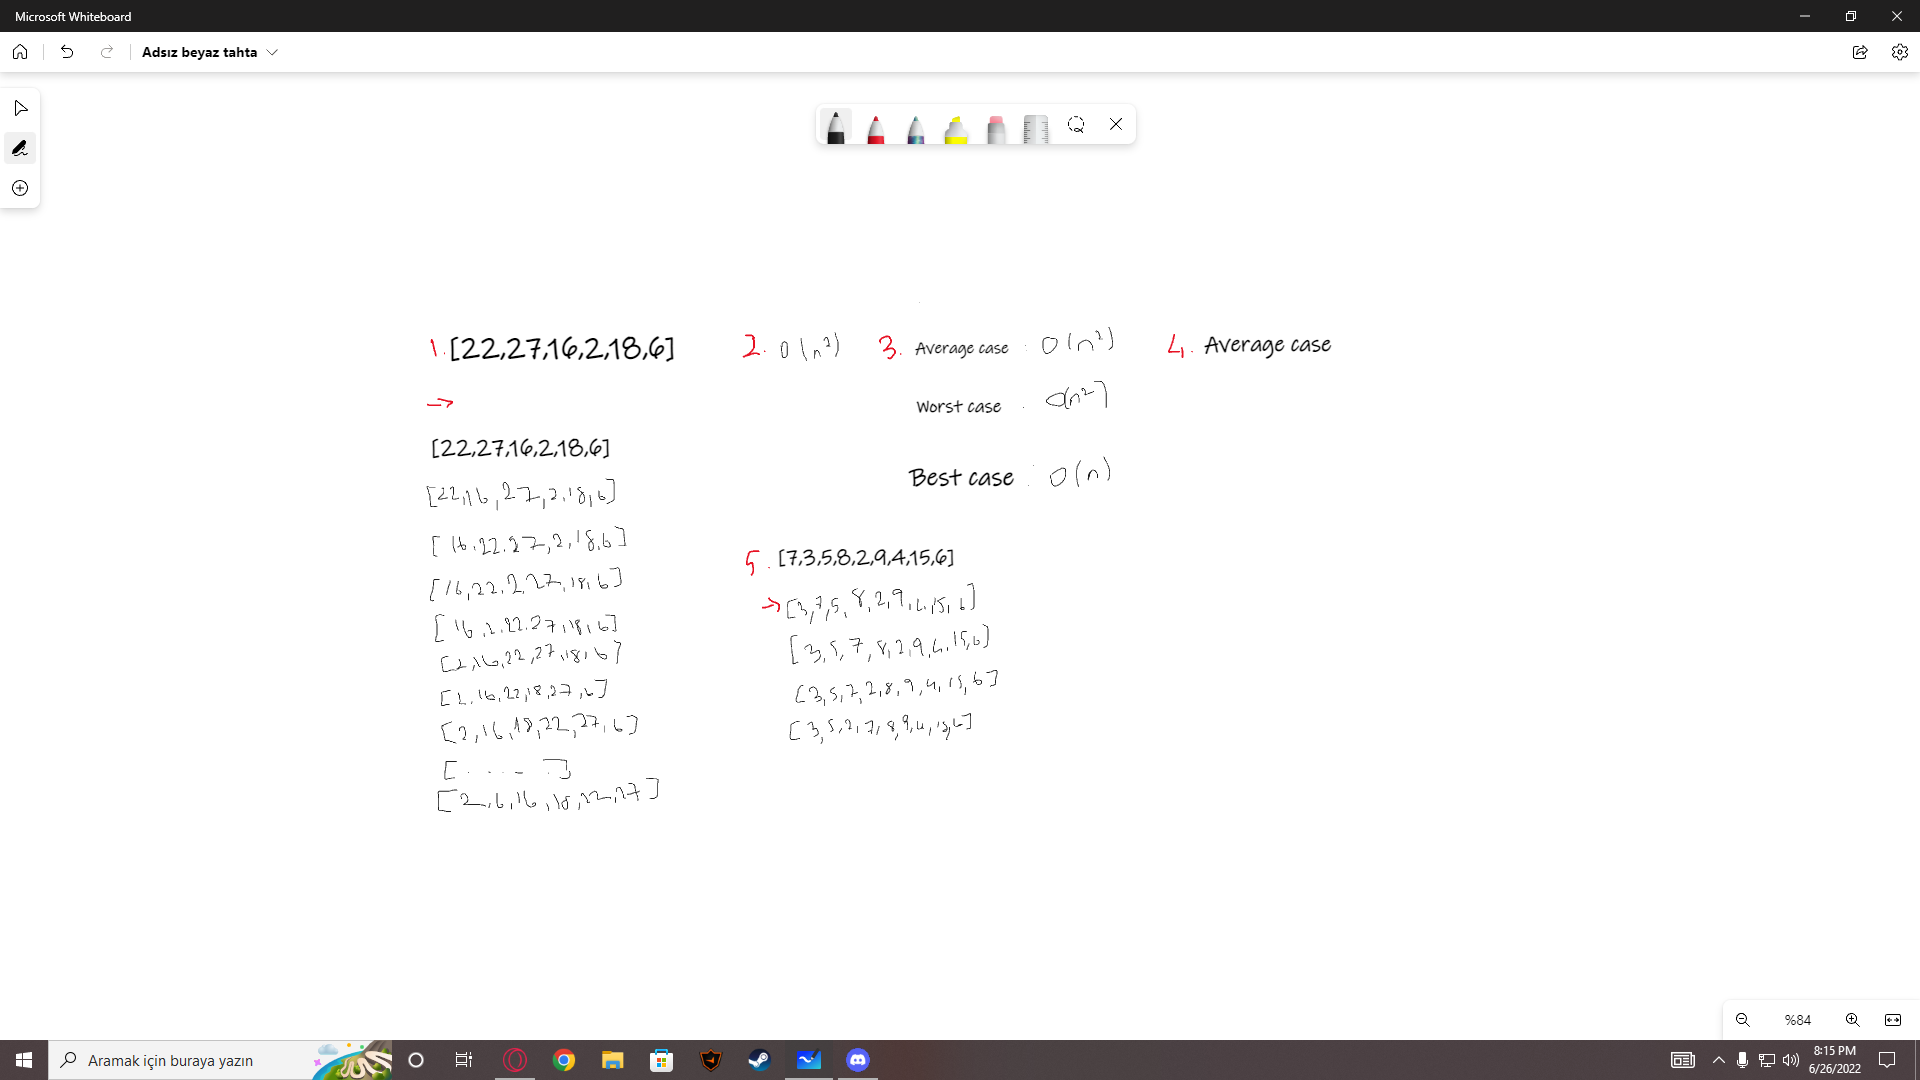 Microsoft Whiteboard
Adsız beyaz tahta
1. [22,27,16,2,18,6]
→
[22,27,16,2,18,6]
[22,16,27,2,18,6]
[16,22,27,2,18,6]
[16,22,2,27,18,6]
[16,2,22,27,18,6]
[2,16,22,27,18,6]
[2,16,22,18,27,6]
[2,16,18,22,27,6]
[.....]
[2,6,16,18,22,27]
2. O(n²)
3. Average case : O(n²)
Worst case : O(n²)
Best case : O(n)
4. Average case
5. [7,3,5,8,2,9,4,15,6]
→ [3,7,5,8,2,9,4,15,6]
[3,5,7,8,2,9,4,15,6]
[3,5,7,2,8,9,4,15,6]
[3,5,2,7,8,9,4,15,6]
%84
Aramak için buraya yazın
8:15 PM
6/26/2022